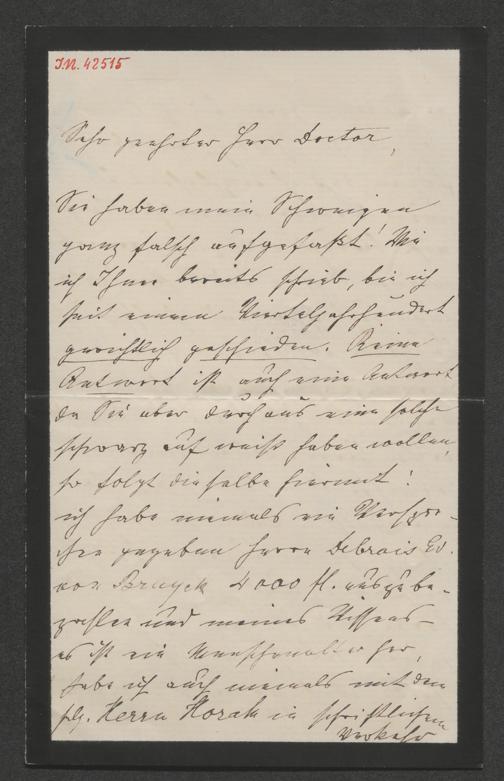 I.N. 42515
Sehr geehrter Herr Doctor,
Sie haben mein Schweigen
ganz falsch aufgefaßt! Wie
ich Ihnen bereits schrieb, bin ich
seit einem Vierteljahrhundert
gerichtlich geschieden. Keine
Antwort ist auch eine Antwort
da Sie aber durchaus eine solche
schwarz auf weiß haben wollen,
so folgt dieselbe hiermit:
ich habe niemals ein Verspre-
chen gegeben Herrn Debrois Ed.
van Bruyck 4000 fl. auszube-
zahlen und meines Wissens –
es ist ein Menschenalter her,
habe ich auch niemals mit dem
slg. Herrn Horak in schriftlichem
Verkehr